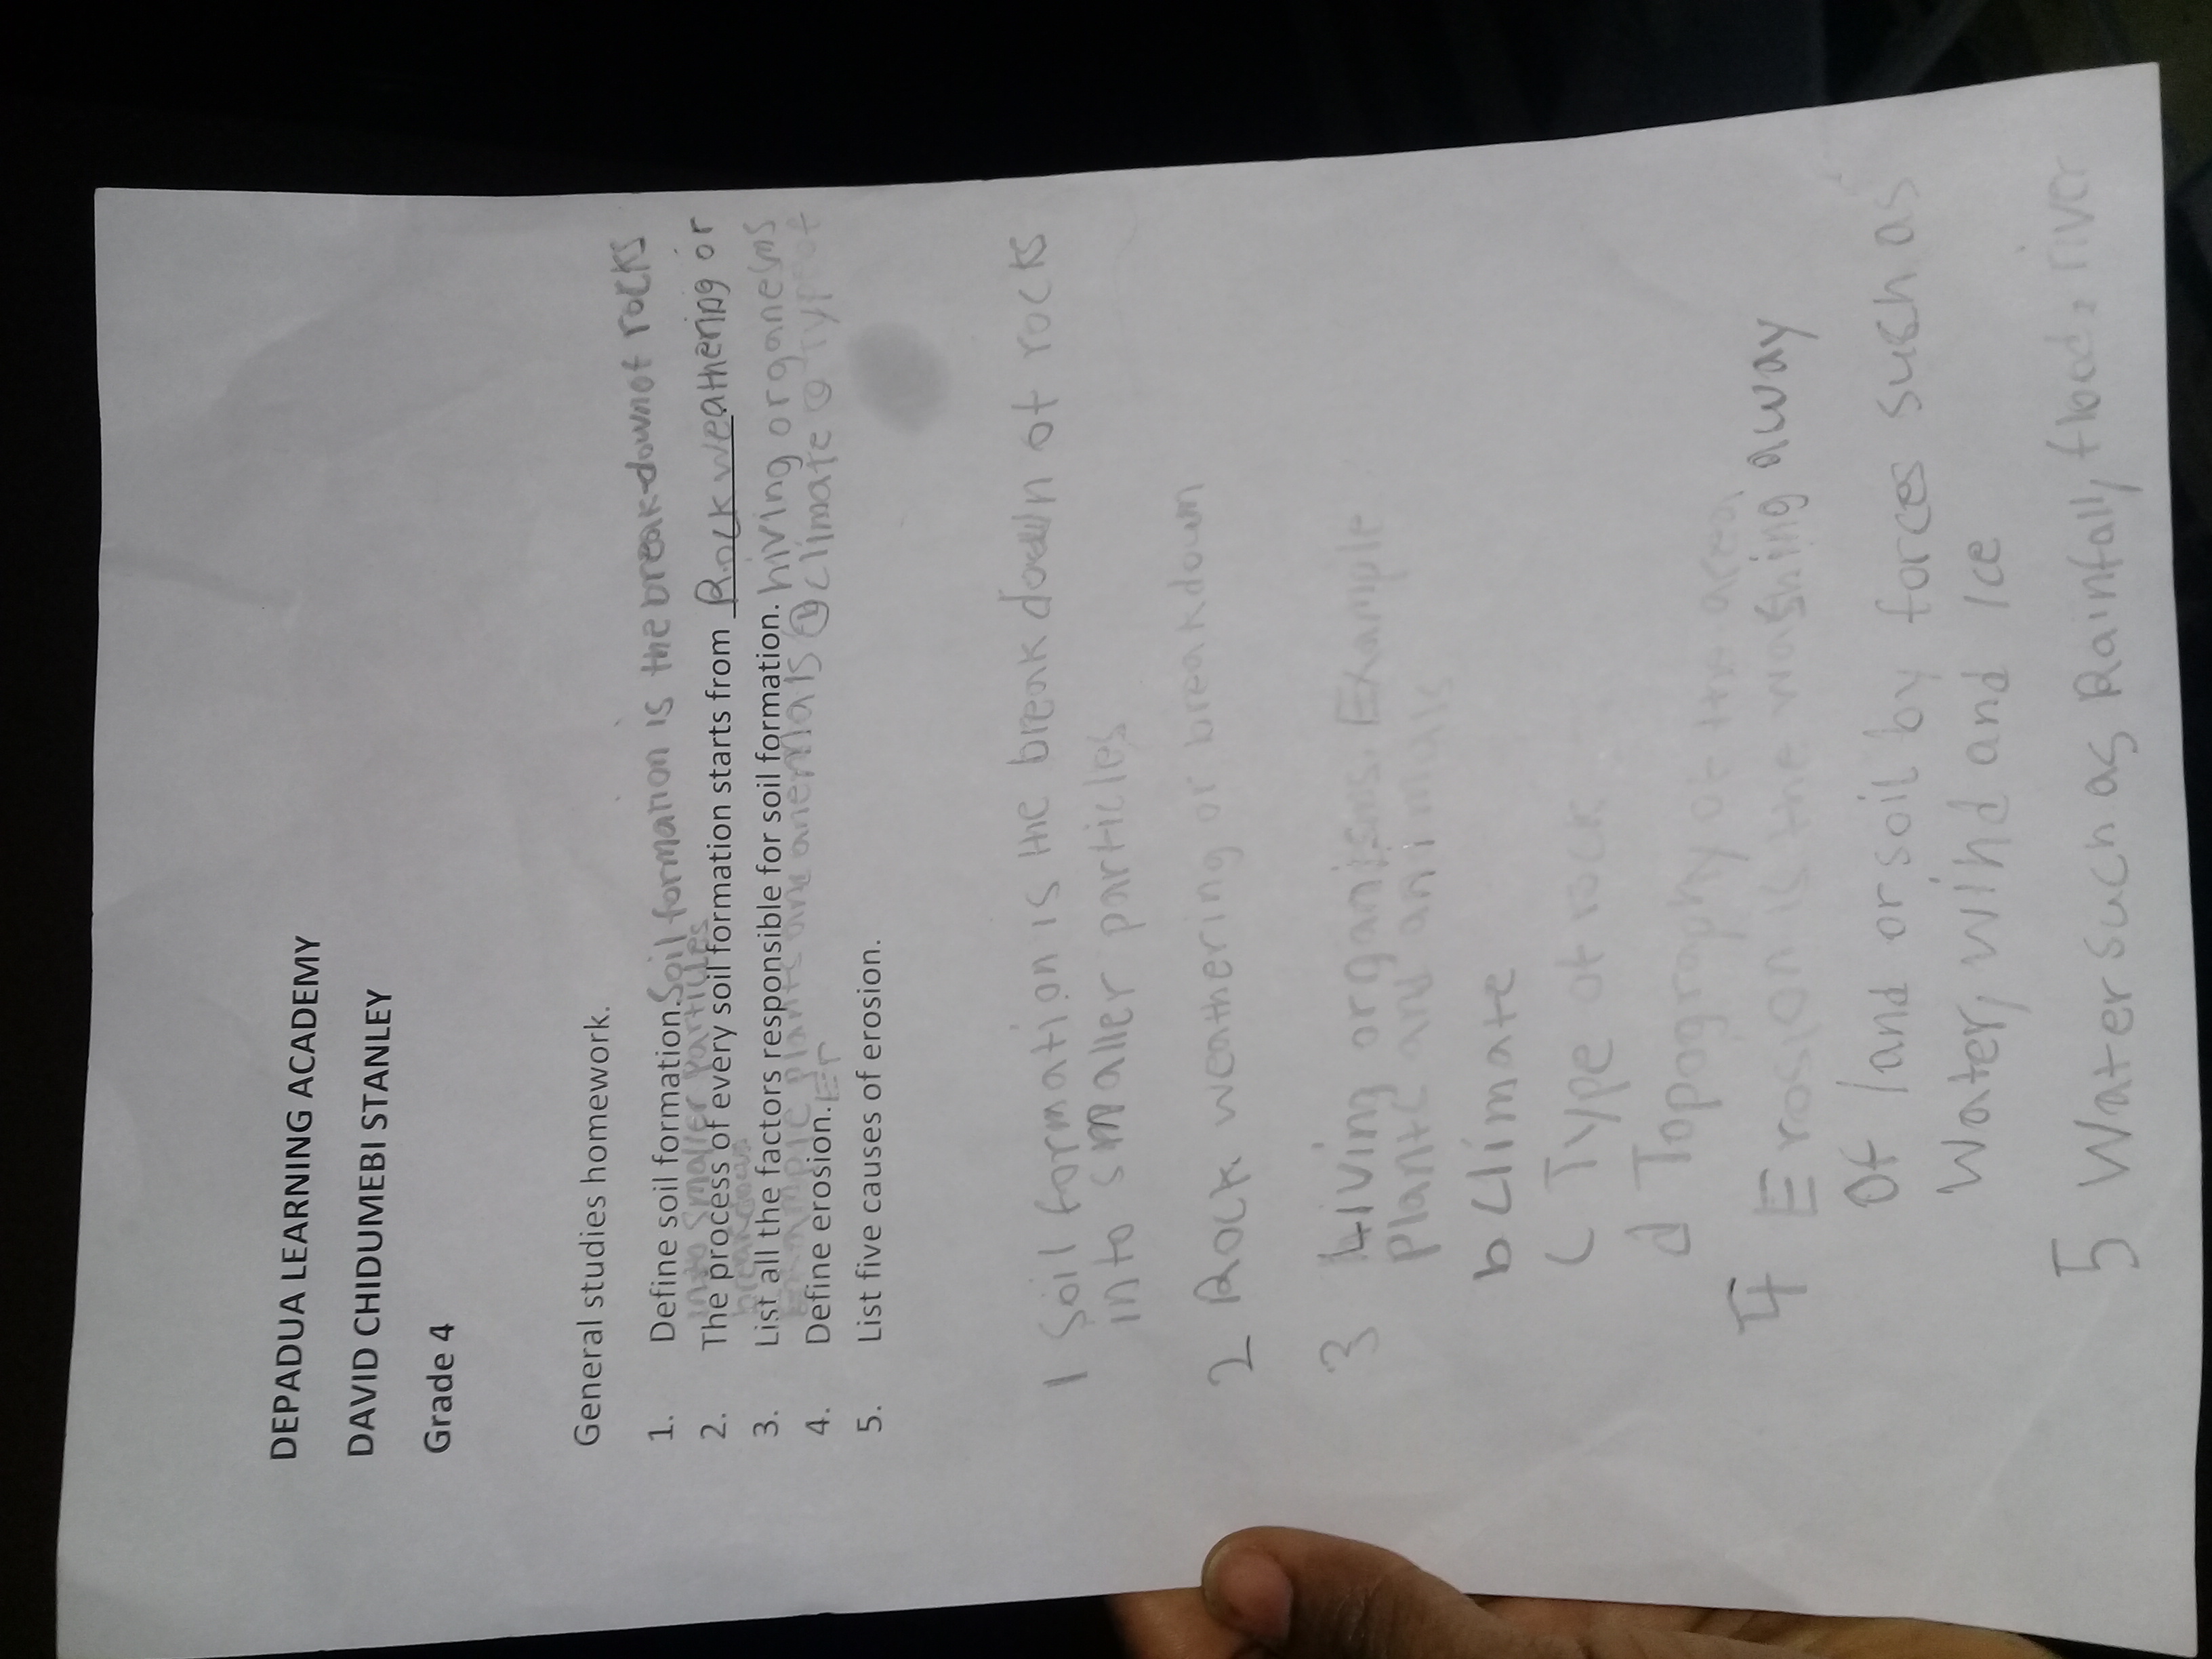 DEPADUA LEARNING ACADEMY
DAVID CHIDUMEBI STANLEY
Grade 4
General studies homework.
1. Define soil formation. Soil formation is the break down of rocks
into smaller particles
2. The process of every soil formation starts from Rock weathering or
breakdown
3. List all the factors responsible for soil formation. living organesms
plants and b climate c Type of
4. Define erosion. Er
5. List five causes of erosion.
1 Soil formation is the break down of rocks
into smaller particles
2 Rock weathering or breakdown
3 Living organisms. Example
Plants and animals
b climate
C Type of rock
d Topography of the area
4 Erosion is the washing away
Of land or soil by forces such as
water, wind and Ice
5 Water such as Rainfall, flood, river